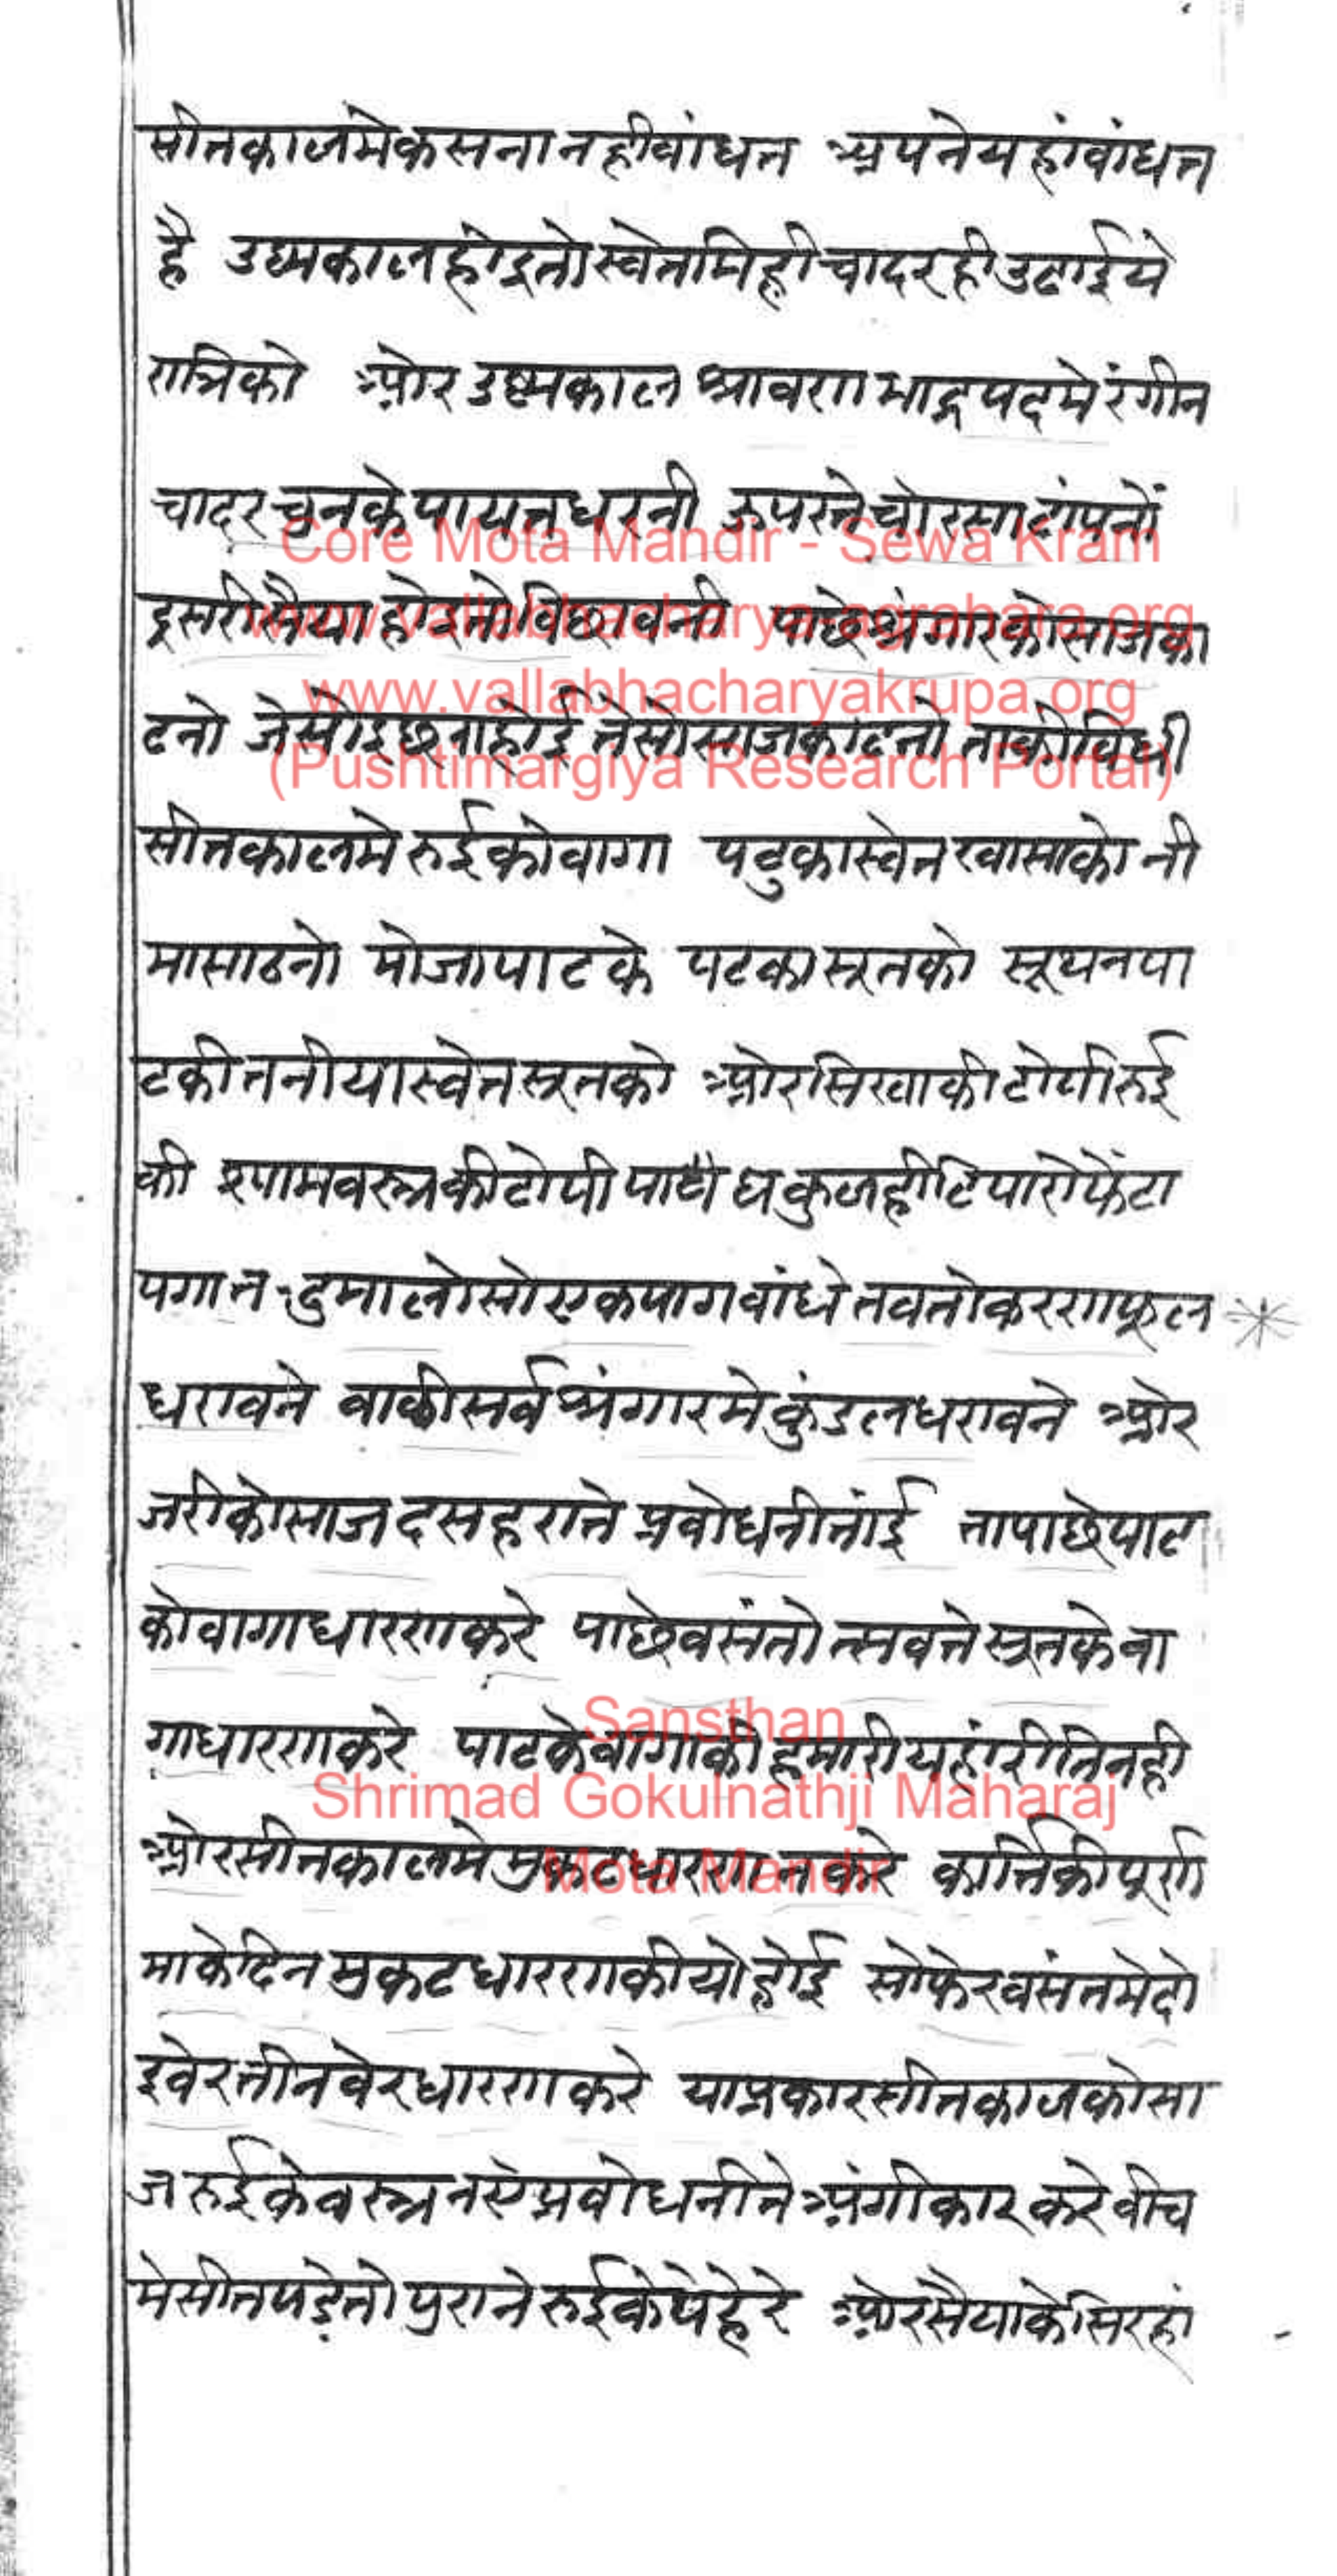 सीतकालमे कसना नही वांधत अपने यहां वांधत
है उष्मकाल होइ तो स्वेत मिही चादर ही उढाईये
रात्रिको ओर उष्मकाल श्रावण भाद्रपदमे रंगीन
चादर चुनके पायत धरनी ऊपरते चोरसा ढांपनों
दुसरी सैया होइ तो विछावनी पाछे श्रृंगारको साज का
ढनो जेसो इछा होई तेसो साज काढनो ताकी विधी
सीतकालमे रुईको वागा पटुका स्वेत खासाको नी
मा साठनो मोजा पाटके पटका सूतको सूथन पा
टकी तनीया स्वेत सूतको ओर सिखाकी टोपी रुई
की श्याम वस्त्रकी टोपी पाघ कुलही टिपारो फेंटा
पगा दुमालो सो एक पाग वांधे तव तो करणफूल
धरावने वाकी सर्व श्रृंगारमे कुंडल धरावने ओर
जरीको साज दसहराते प्रवोधनी तांई ता पाछे पाट
को वागा धारण करे पाछे वसंतोत्सवते सूतके वा
गा धारण करे पाटके वागाकी हमारी यहां रीति नही
ओर सीतकालमे मुकट धारण न करे कार्त्तिकी पूर्ण
माके दिन मुकट धारण कीयो होई सो फेर वसंतमे दो
इ वेर तीन वेर धारण करे या प्रकार सीतकालको सा
ज रुईके वस्त्र नए प्रवोधनीते अंगीकार करे वीच
मे सीत पडे तो पुराने रुईके पेहेरे ओर सैयाके सिरहां
Core Mota Mandir - Sewa Kram
www.vallabhacharya-agrahara.org
www.vallabhacharyakrupa.org
(Pushtimargiya Research Portal)
Sansthan
Shrimad Gokulnathji Maharaj
Mota Mandir